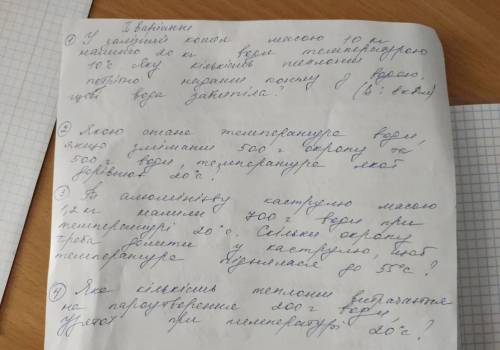 I варіанти
① У залізний котел масою 10 кг
налито 20 кг води температурою
10°С Яку кількість теплоти
потрібно надати котлу з водою,
щоб вода закипіла?
② Якою стане температура води,
якщо змішати 500 г окропу та
500 г води, температура якої
дорівнює 20°С?
③ В алюмінієву каструлю масою
1,2 кг налили 700 г води при
температурі 20°С. Скільки окропу
треба долити у каструлю, щоб
температура піднялася до 55°С?
④ Яка кількість теплоти витрачається
на пароутворення 200 г води,
узятої при температурі 20°С?